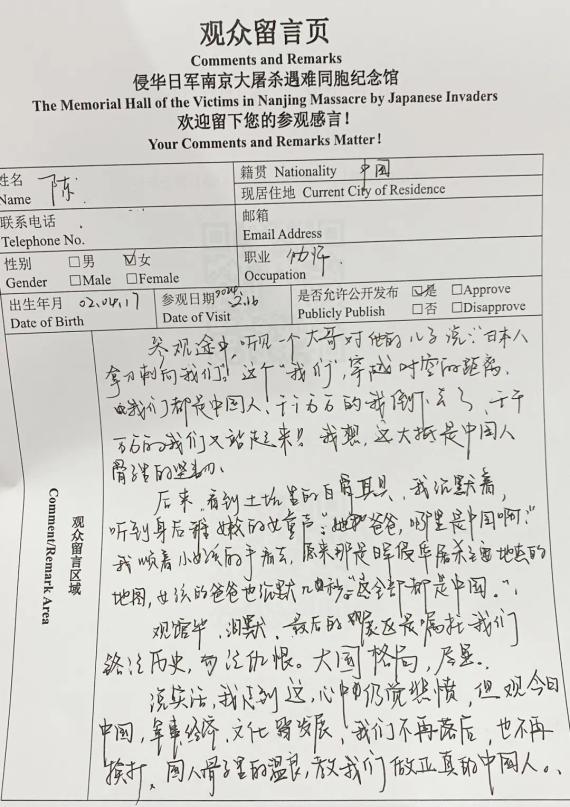 观众留言页
Comments and Remarks
侵华日军南京大屠杀遇难同胞纪念馆
The Memorial Hall of the Victims in Nanjing Massacre by Japanese Invaders
欢迎留下您的参观感言！
Your Comments and Remarks Matter!
姓名 Name 陈
籍贯 Nationality 中国
现居住地 Current City of Residence
联系电话 Telephone No.
邮箱 Email Address
性别 Gender □男 ☑女 □Male □Female
职业 Occupation 幼师
出生年月 Date of Birth 02.04.17
参观日期 Date of Visit 2024 2.16
是否允许公开发布 Publicly Publish ☑是 □Approve □否 □Disapprove
观众留言区域
Comment/Remark Area
参观途中，听见一个大哥对他的儿子说：“日本人
拿刀刺向我们”。这个“我们”，穿越时空的距离，
我们都是中国人，千千万万的我倒下去了，千千
万万的我们又站起来！我想，这大抵是中国人
骨子里的坚韧。
后来，看到土坑里的白骨具具，我沉默着，
听到身后稚嫩的女童声：“爸爸，哪里是中国啊？”
我顺着小女孩的手看去，原来那是日军侵华屠杀主要地点的
地图，女孩的爸爸也沉默几秒：“这全部都是中国。”
观馆毕，泪默，最后的展区是嘱托我们
铭记历史，勿记仇恨。大国格局，尽显。
说实话，我感到这，心中仍觉悲愤，但观今日
中国，军事经济、文化皆发展，我们不再落后，也不再
挨打，国人骨子里的温良，教我们做正真的中国人。